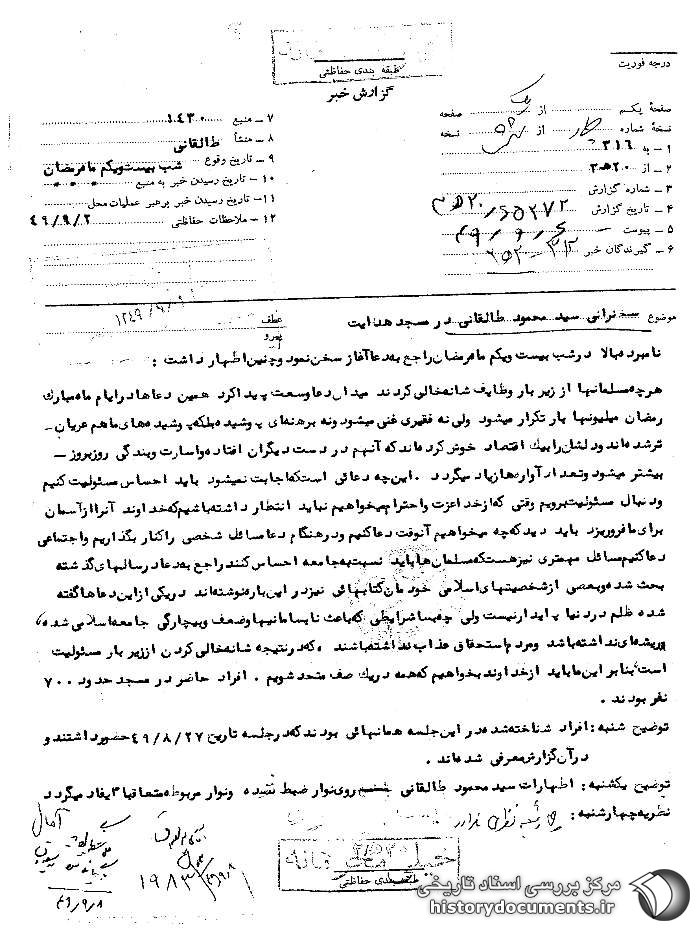 درجه فوریت
طبقه بندی حفاظتی
گزارش خبر
صفحهٔ یکم از یک صفحه
نسخهٔ شماره از نسخه
۱ – به ۳۱۶
۲ – از ۲۰ه۳
۳ – شماره گزارش
۴ – تاریخ گزارش
۵ – پیوست
۶ – گیرندگان خبر
۷ – منبع ۱۰۴۳۰
۸ – منشأ طالقانی
۹ – تاریخ وقوع شب بیست‌ویکم ماه رمضان
۱۰ – تاریخ رسیدن خبر به منبع
۱۱ – تاریخ رسیدن خبر برهبر عملیات محل
۱۲ – ملاحظات حفاظتی ۴۹/۹/۲
موضوع سخنرانی سید محمود طالقانی در مسجد هدایت
عطف
پیرو
۱۳۴۹/۹/۹
نامبرده بالا در شب بیست ویکم ماه رمضان راجع به دعا آغاز سخن نمود و چنین اظهار داشت :
هرچه مسلمانها از زیر بار وظایف شانه خالی کردند میدان دعا وسعت پیدا کرد همین دعاها در ایام ماه مبارک
رمضان میلیونها بار تکرار میشود ولی نه فقیری غنی میشود و نه برهنه‌ای پوشیده بلکه پوشیده‌های ما هم عریان –
تر شده‌اند و دلشان را بیک اقتصاد خوش کرده‌اند که آنهم در دست دیگران افتاده و اسارت و بندگی روز بروز –
بیشتر میشود و تعداد آواره‌ها زیاد میگردد . این چه دعائی است که اجابت نمیشود باید احساس مسئولیت کنیم
و دنبال مسئولیت برویم وقتی که از خدا عزت و احترام میخواهیم نباید انتظار داشته باشیم که خداوند آنرا از آسمان
برای ما فرو ریزد باید دید که چه میخواهیم آنوقت دعا کنیم و در هنگام دعا مسائل شخصی را کنار بگذاریم و اجتماعی
دعا کنیم مسائل مهمتری نیز هست که مسلمان‌ها باید نسبت به جامعه احساس کنند راجع به دعا در سالهای گذشته
بحث شده و بعضی از شخصیتهای اسلامی خودمان کتابهائی نیز در این باره نوشته‌اند در یکی از این دعاها گفته
شده ظلم در دنیا پایدار نیست ولی چه بسا شرایطی که باعث نابسامانیها و ضعف و بیچارگی جامعه اسلامی شده
ریشه‌ای نداشته باشد و مردم استحقاق عذاب نداشته باشند که در نتیجه شانه خالی کردن از زیر بار مسئولیت
است بنابر این ما باید از خداوند بخواهیم که همه در یک صف متحد شویم . افراد حاضر در مسجد حدود ۷۰۰
نفر بودند .
توضیح شنبه : افراد شناخته شده در این جلسه همانهائی بودند که در جلسه تاریخ ۴۹/۸/۲۷ حضور داشتند و
در آن گزارش معرفی شده‌اند .
توضیح یکشنبه : اظهارات سید محمود طالقانی روی نوار ضبط شده و نوار مربوطه متعاقبا ایفاد میگردد
نظریه چهارشنبه : چهارشنبه نظری ندارد
۴۹/۹/۸
طبقه بندی حفاظتی
مرکز بررسی اسناد تاریخی
historydocuments.ir